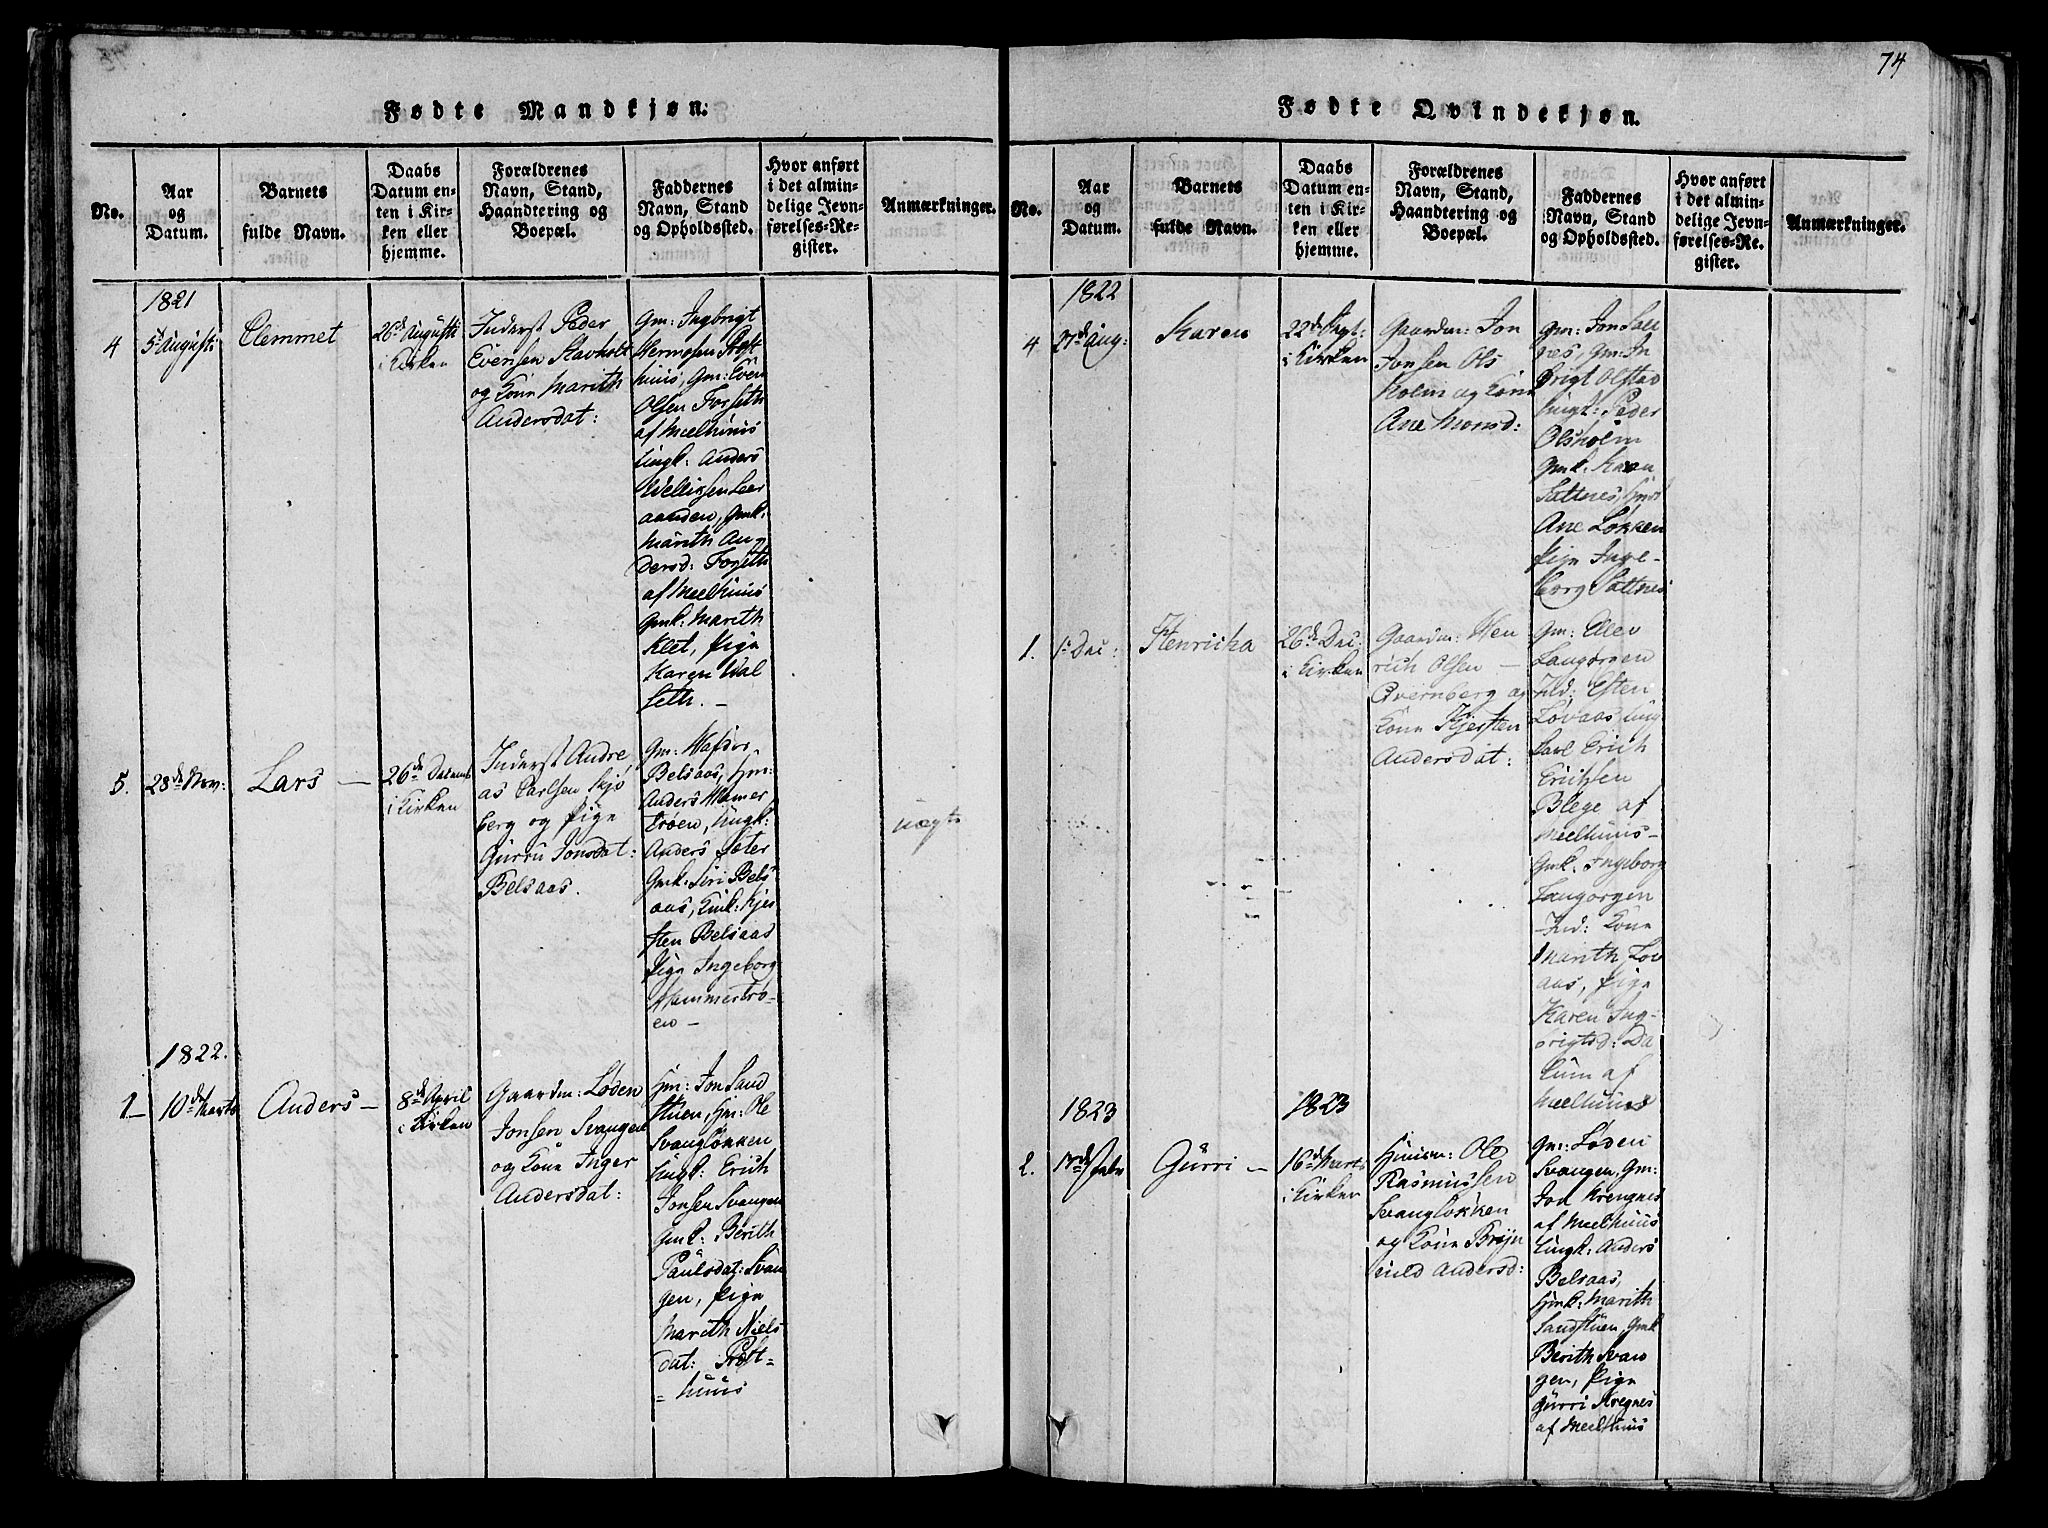 74
Fødte Mandkjøn:
No.
Aar
og
Datum.
Barnets
fulde Navn.
Daabs
Datum en-
ten i Kir-
ken eller
hjemme.
Forældrenes
Navn, Stand,
Haandtering og
Boepæl.
Faddernes
Navn, Stand
og Opholdssted.
Hvor anført
i det almin-
delige Jevn-
førelses-Re-
gister.
Anmærkninger.
1821
4
5t Augusti
Clemmet
26de Augusti
i Kirken
Inderst Peder
Evensen Stavholt
og Kone Marith
Andersdat:
Gm: Ingbrigt
Hermosen
huus, Gm: Even
Olsen Forseth
af Meelhuus
Ungk: Anders
Leer
aanden, Gmk:
Marith An
dersd: Forseth
af Meelhuus
Gmk: Marith
Klet, Pige
Karen Wal
seth. -
5.
28de Nov:
Lars -
26de Decemb
i Kirken
Inderst Andre
as Carlsen
berg og Pige
Gurru Jonsdat:
Belsaas.
Gm: Hafdor
Belsaas, Hm:
Anders Hamer
trøen, Ungk:
Anders Sæter
Gmk: Siri Bels
aas, Kmk: Kjer
sten Belsaas
Pige Ingeborg
Hammertrø-
en -
uægte
1822.
1 -
10de Marts
Anders -
8de April
i Kirken
Gaardm: Løden
Jonsen Svangen
og Kone Inger
Andersdat:
Hm: Jon Sand
stuen, Hm: Ole
Svangløkken
Ungk: Erich
Jonsen Svangen
Gmk: Berith
Paulsdat: Svan
gen, Pige
Marith Niels
dat: Prøtt-
huus
Fødte Qvindekjøn.
No.
Aar
og
Datum.
Barnets
fulde Navn.
Daabs
Datum en-
ten i Kir-
ken eller
hjemme.
Forældrenes
Navn, Stand,
Haandtering og
Boepæl.
Faddernes
Navn, Stand
og Opholdssted.
Hvor anført
i det almin-
delige Jevn-
førelses-Re-
gister.
Anmærkninger.
1822
4
27de Aug:
Karen
22de Sept:
i Kirken
Gaardm: Jon
Jonsen Ols
holm og Kone
Ane Monsd:
Gm: Jon Salt
nes, Gm: In
brigt Olstad
Ungk: Peder
Olsholm
Gmk: Karen
Saltnes, Hmk
Ane Løkken
Pige Inge-
borg Saltnes
1.
1t Dec:
Henricka
26de Dec:
i Kirken
Gaardm: Hen
rich Olsen -
Qvernberg og
Kone Kjersten
Andersdat:
Gm: Ellev
Langørgen
Ind: Esten
Løvaas, Ung
karl Erich
Erichsen
Blege af
Meelhuus -
Gmk: Ingeborg
Langorgen
Ind: Kone
Marith Løv
aas, Pige
Karen Ing-
brigtsd: Da
lum af
Meelhuus
1823
1823
2.
17de Febr
Gurri -
16de Marts
i Kirken
Huusm: Ole
Rasmussen
Svangløkken
og Kone Brøn
ild Andersd:
Gm: Løden
Svangen, Gm:
Jon Krengnes
af Meelhuus
Ungk: Anders
Belsaas,
Hmk: Marith
Sandstuen, Gmk
Berith Svan
gen, Pige
Gurri Kregnes
af Meelhuus